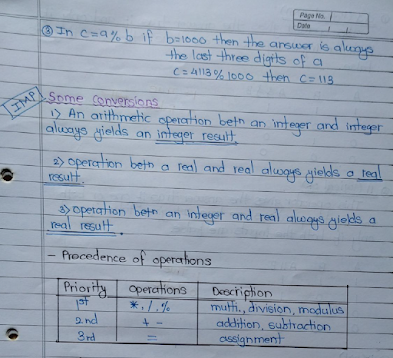 Page No.
Date
③ In c=a%b if b=1000 then the answer is always
the last three digits of a
c=4113%1000 then c=113
IMP
Some conversions
1) An arithmetic operation betn an integer and integer
always yields an integer result.
2) operation betn a real and real always yields a real
result.
3) operation betn an integer and real always yields a
real result.
- Precedence of operations
Priority operations Description
1st *, /, % multi., division, modulus
2nd + - addition, subtraction
3rd = assignment